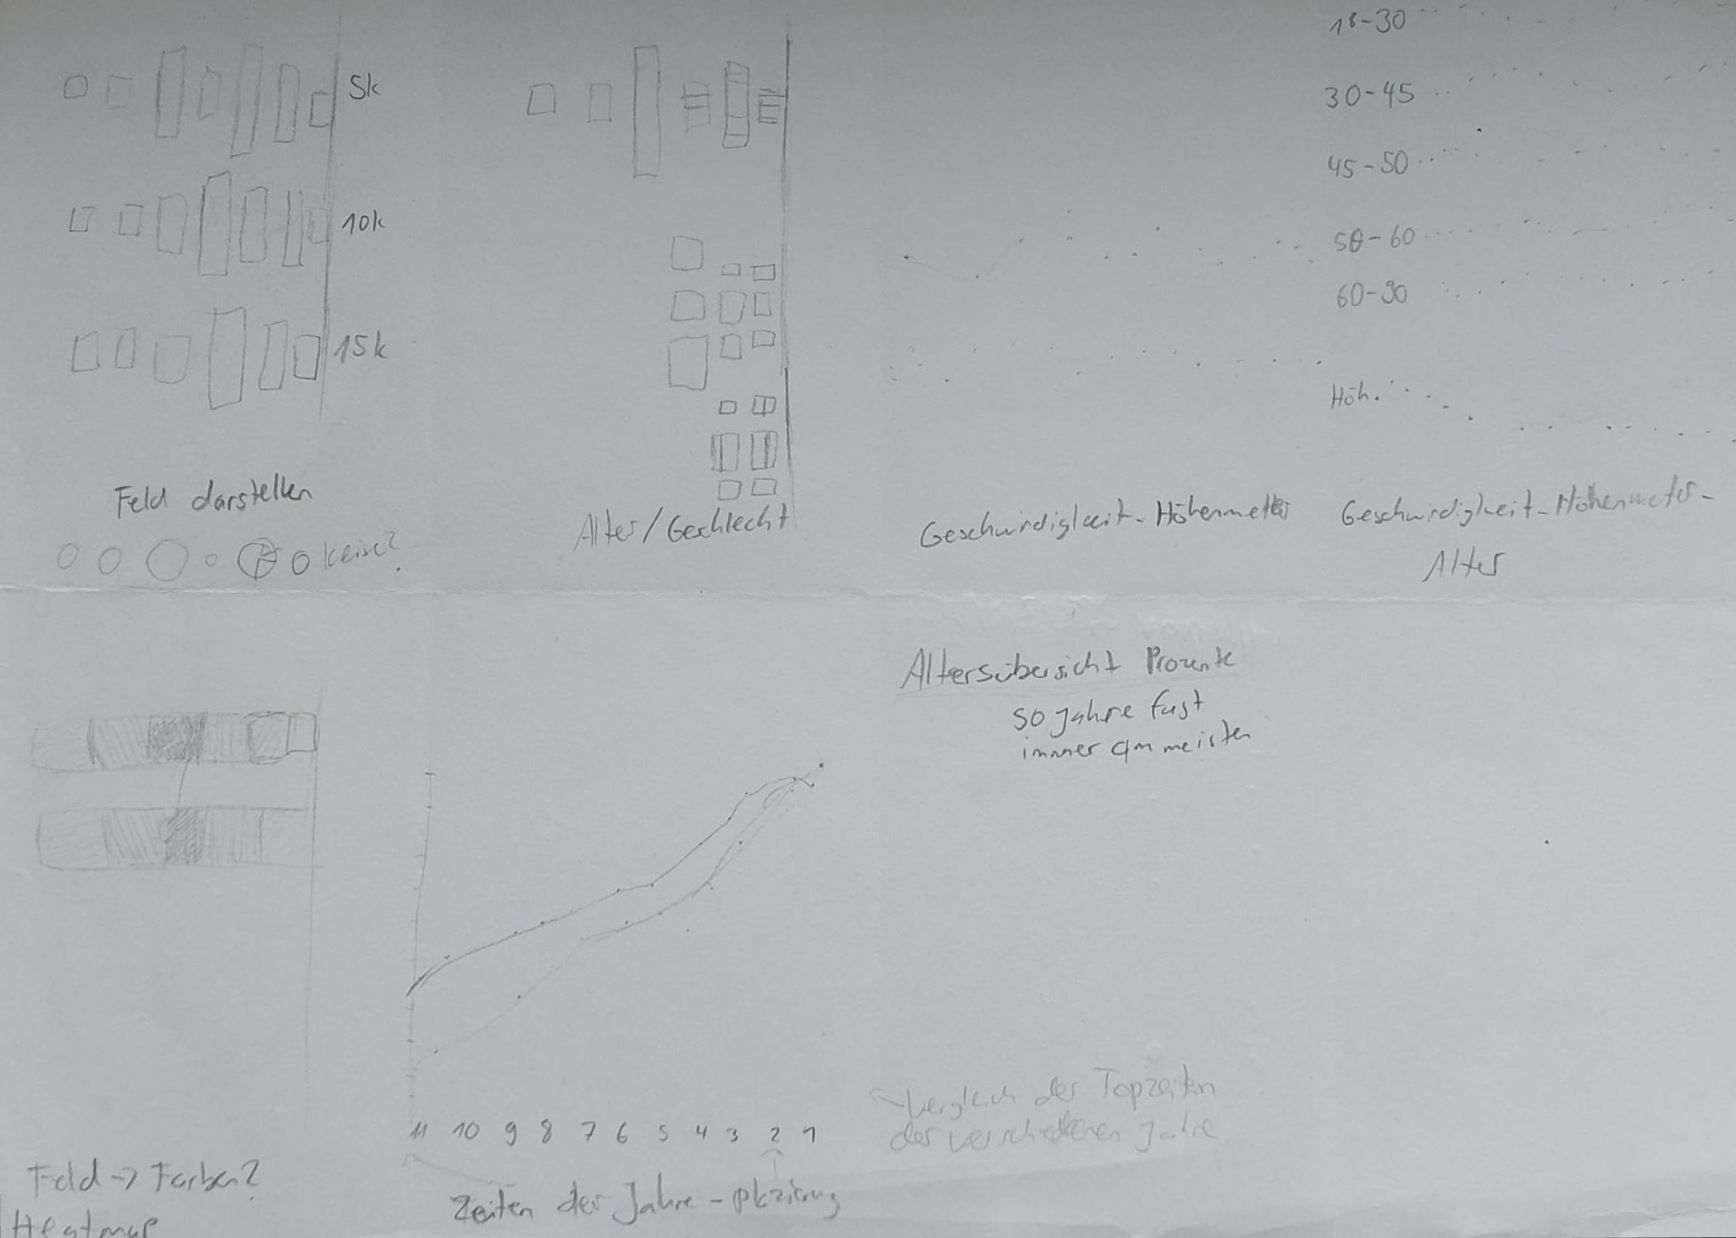 5k
10k
15k
Feld darstellen
Keise?
Alter/Geschlecht
Geschwindigkeit-Höhenmeter
18-30
30-45
45-50
50-60
60-90
Höh.
Geschwindigkeit-Höhenmeter-
Alter
Feld -> Farben?
Heatmap
11 10 9 8 7 6 5 4 3 2 1
Zeiten der Jahre -
Altersübersicht Prozente
50 Jahre fast
immer am meisten
Vergleich der Topzeiten
der verschiedenen Jahre